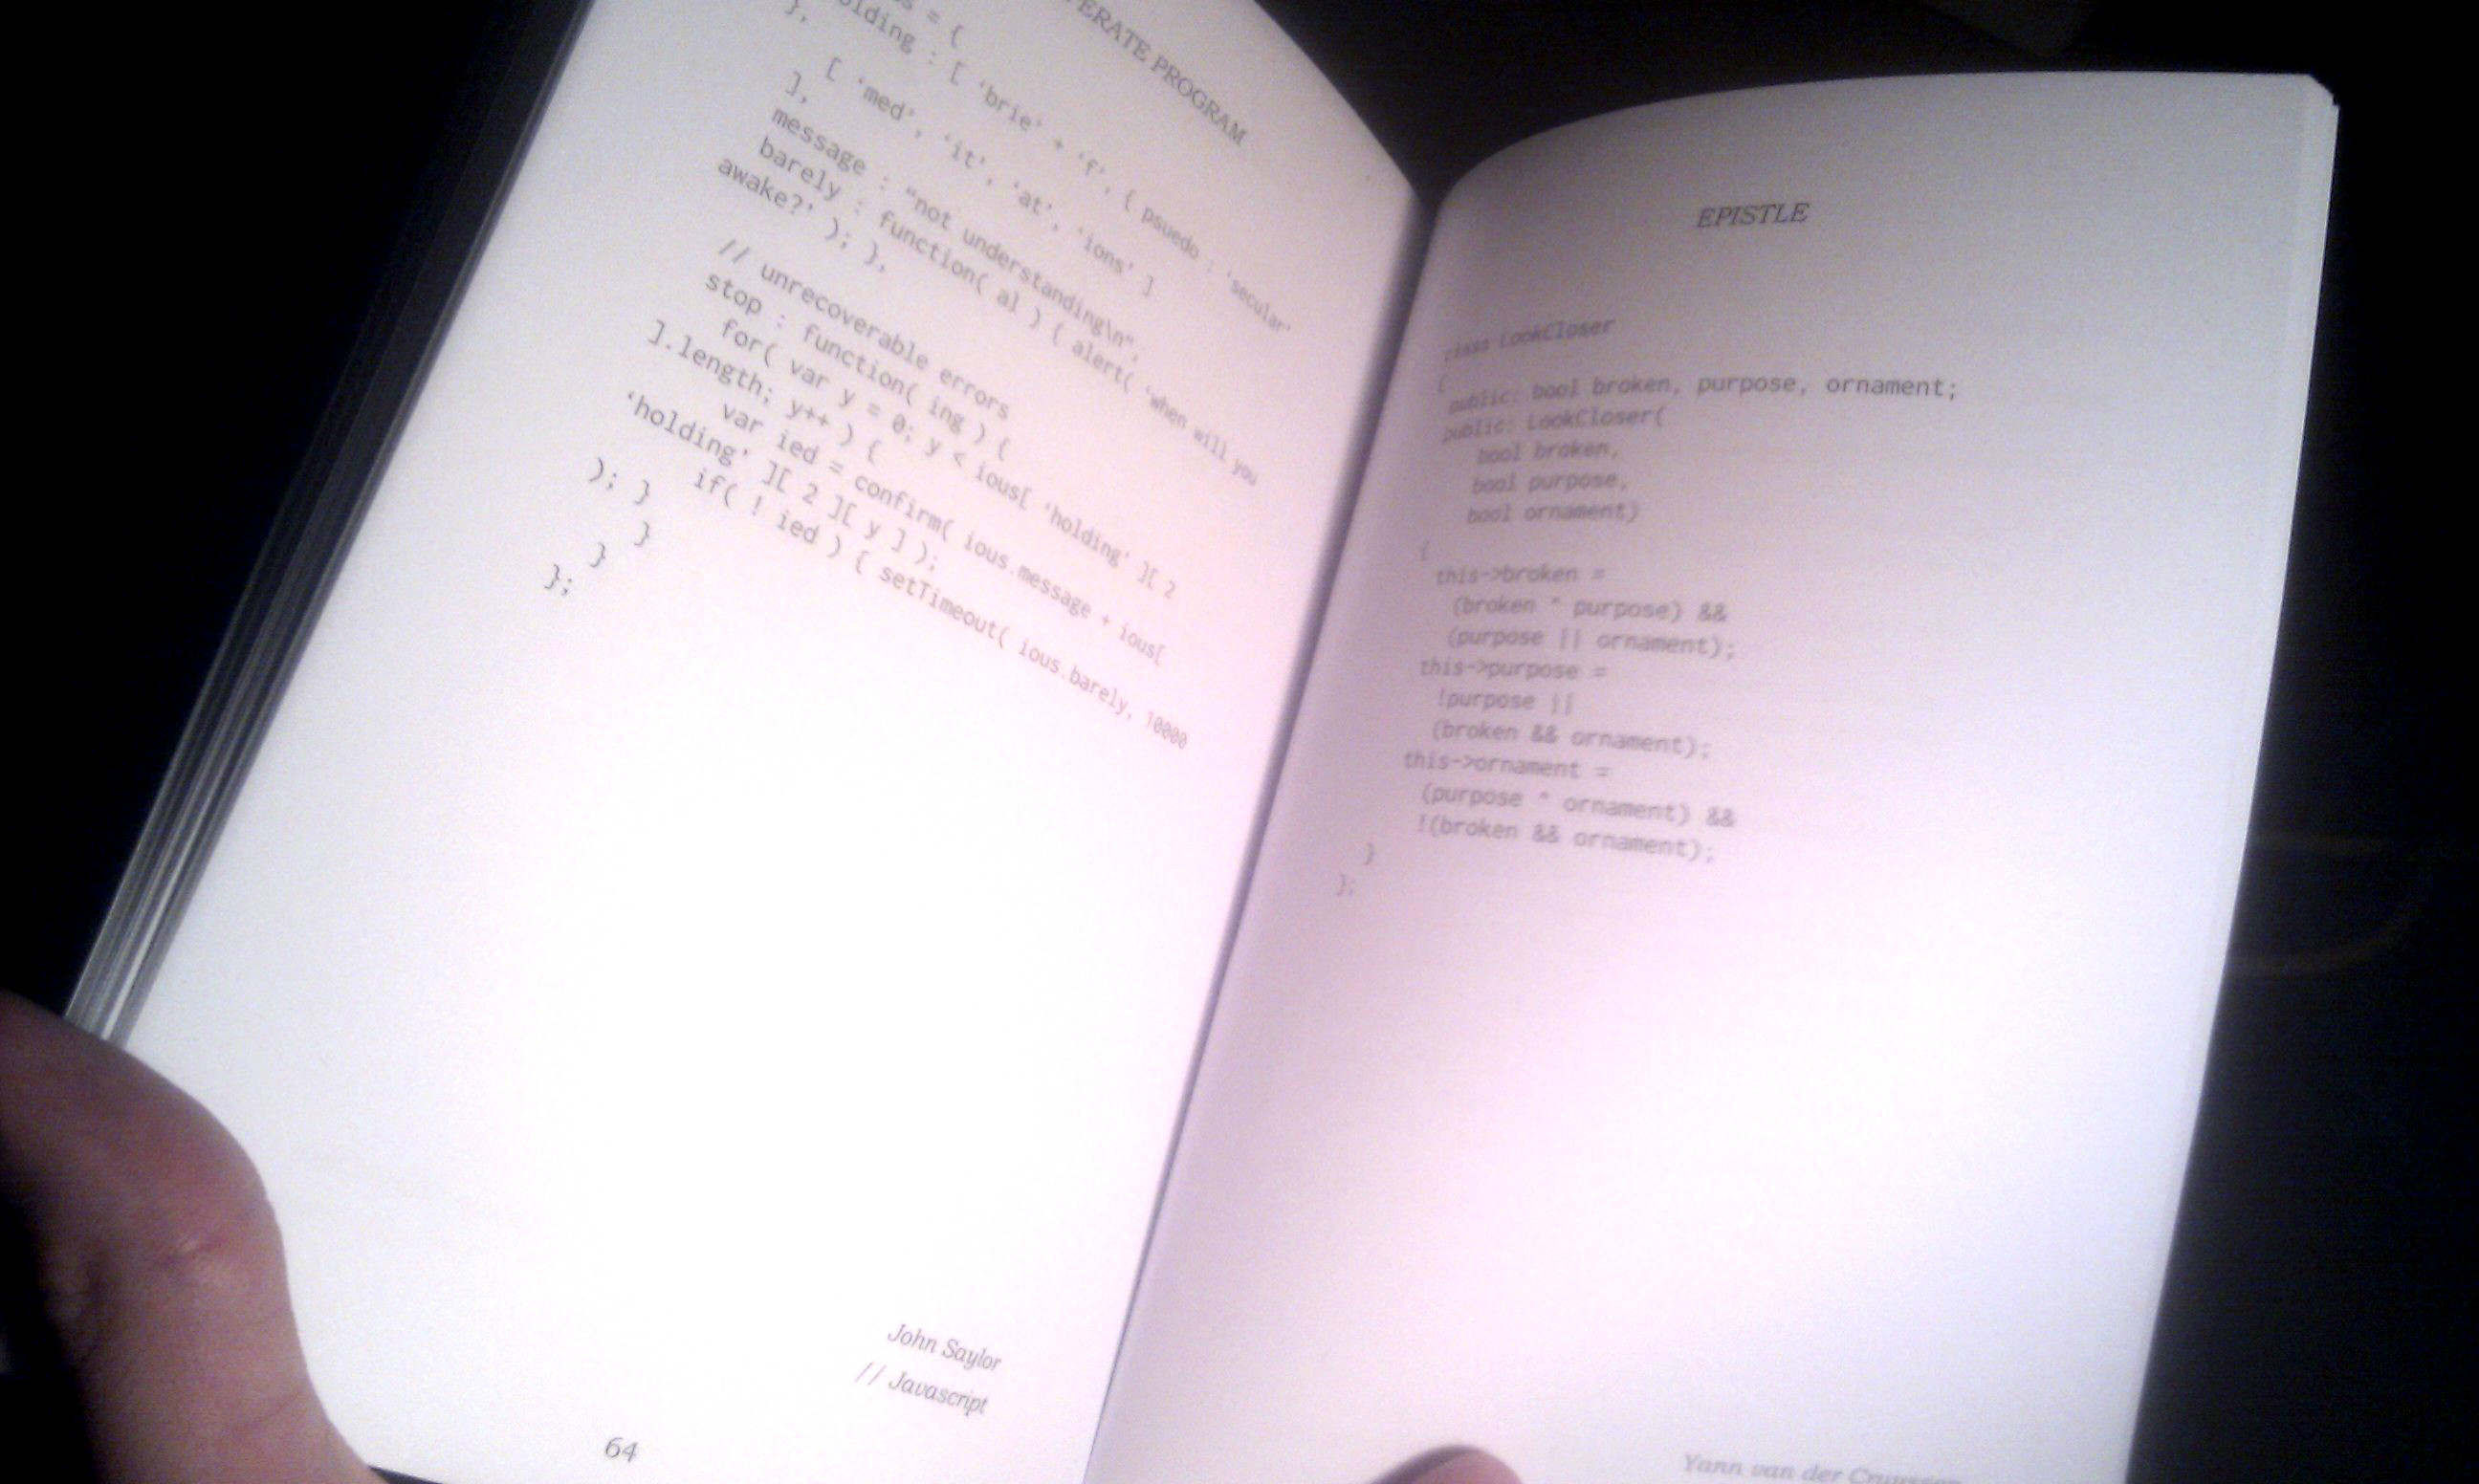 ERATE PROGRAM
= {
holding : [ ‘brie’ + ‘f’, { psuedo : ‘secular’
},
[ ‘med’, ‘it’, ‘at’, ‘ions’ ]
],
message : “not understanding\n”,
barely : function( al ) { alert( ‘when will you
awake?’ ); },
// unrecoverable errors
stop : function( ing ) {
for( var y = 0; y < ious[ ‘holding’ ][ 2
].length; y++ ) {
var ied = confirm( ious.message + ious[
‘holding’ ][ 2 ][ y ] );
if( ! ied ) { setTimeout( ious.barely, 10000
); }
}
}
};
John Saylor
// Javascript
64
EPISTLE
class LookCloser
{
public: bool broken, purpose, ornament;
public: LookCloser(
bool broken,
bool purpose,
bool ornament)
{
this->broken =
(broken ^ purpose) &&
(purpose || ornament);
this->purpose =
!purpose ||
(broken && ornament);
this->ornament =
(purpose ^ ornament) &&
!(broken && ornament);
}
};
Yann van der Cruyssen